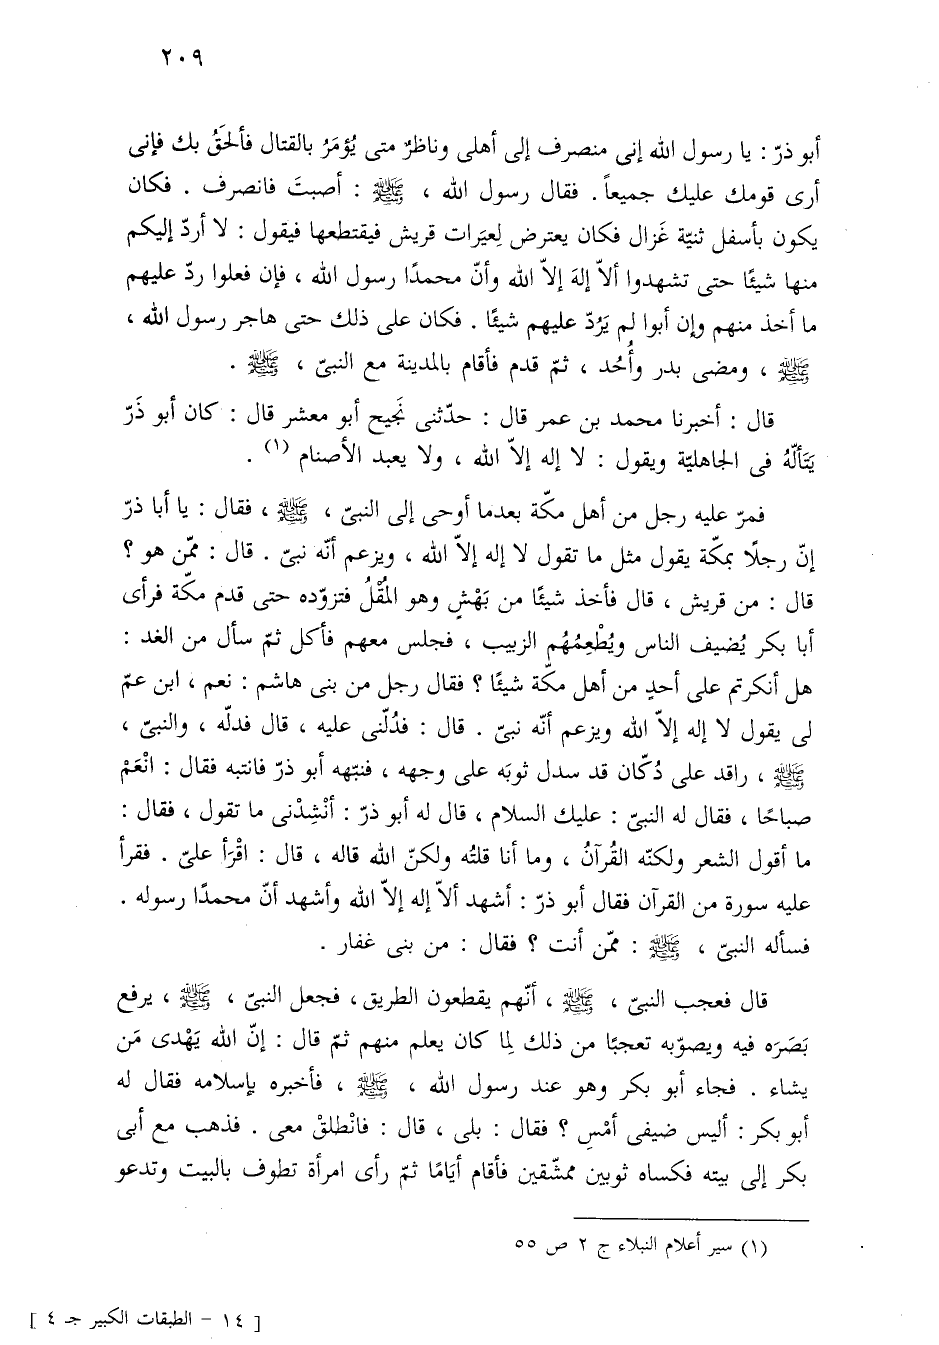 ٢٠٩
أبو ذرّ : يا رسول الله إنى منصرف إلى أهلى وناظرٌ متى يُؤمَرُ بالقتال فألحَقُ بك فإنى
أرى قومك عليك جميعاً . فقال رسول الله ، ﷺ : أصبتَ فانصرف . فكان
يكون بأسفل ثنيّة غَزال فكان يعترض لِعيَرات قريش فيقتطعها فيقول : لا أردّ إليكم
منها شيئًا حتى تشهدوا ألاّ إلهَ إلاّ الله وأنّ محمدًا رسول الله ، فإن فعلوا ردّ عليهم
ما أخذ منهم وإن أبوا لم يَرُدّ عليهم شيئًا . فكان على ذلك حتى هاجر رسول الله ،
ﷺ ، ومضى بدر وأُحُد ، ثمّ قدم فأقام بالمدينة مع النبىّ ، ﷺ .
قال : أخبرنا محمد بن عمر قال : حدّثنى نَجيح أبو معشر قال : كان أبو ذَرّ
يَتَألّهُ فى الجاهليّة ويقول : لا إله إلاّ الله ، ولا يعبد الأصنام (١) .
فمرّ عليه رجل من أهل مكّة بعدما أوحى إلى النبىّ ، ﷺ ، فقال : يا أبا ذرّ
إنّ رجلًا بمكّة يقول مثل ما تقول لا إله إلاّ الله ، ويزعم أنّه نبىّ . قال : ممّن هو ؟
قال : من قريش ، قال فأخذ شيئًا من بَهْشٍ وهو المُقْلُ فتزوّده حتى قدم مكّة فرأى
أبا بكر يُضيف الناس ويُطْعِمُهُم الزبيب ، فجلس معهم فأكل ثمّ سأل من الغد :
هل أنكرتم على أحدٍ من أهل مكّة شيئًا ؟ فقال رجل من بنى هاشم : نعم ، ابن عمّ
لى يقول لا إله إلاّ الله ويزعم أنّه نبىّ . قال : فدُلّنى عليه ، قال فدلّه ، والنبىّ ،
ﷺ ، راقد على دُكّان قد سدل ثوبَه على وجهه ، فنبّهه أبو ذرّ فانتبه فقال : انْعَمْ
صباحًا ، فقال له النبىّ : عليك السلام ، قال له أبو ذرّ : أنْشِدْنى ما تقول ، فقال :
ما أقول الشعر ولكنّه القُرآنُ ، وما أنا قلتُه ولكنّ الله قاله ، قال : اقْرَأ علىّ . فقرأ
عليه سورة من القرآن فقال أبو ذرّ : أشهد ألاّ إله إلاّ الله وأشهد أنّ محمدًا رسوله .
فسأله النبىّ ، ﷺ : ممّن أنت ؟ فقال : من بنى غفار .
قال فعجب النبىّ ، ﷺ ، أنّهم يقطعون الطريق ، فجعل النبىّ ، ﷺ ، يرفع
بَصَرَه فيه ويصوّبه تعجبًا من ذلك لِما كان يعلم منهم ثمّ قال : إنّ الله يَهْدى مَن
يشاء . فجاء أبو بكر وهو عند رسول الله ، ﷺ ، فأخبره بإسلامه فقال له
أبو بكر : أليس ضيفى أمْسِ ؟ فقال : بلى ، قال : فانْطلقْ معى . فذهب مع أبى
بكر إلى بيته فكساه ثوبين ممشّقين فأقام أيّامًا ثمّ رأى امرأة تطوف بالبيت وتدعو
(١) سير أعلام النبلاء ج ٢ ص ٥٥
[ ١٤ - الطبقات الكبير جـ ٤ ]